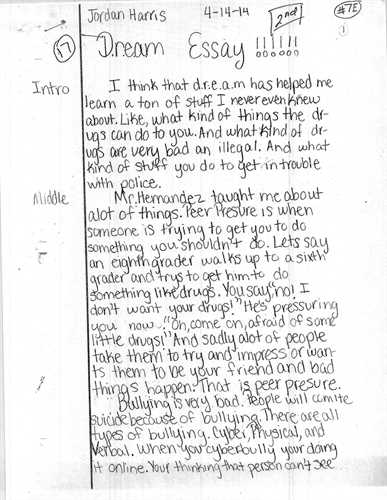 Jordan Harris 4-14-14 2nd #7E
17 Dream Essay !!!!!! 1
Intro I think that d.r.e.a.m has helped me
learn a ton of stuff I never even knew
about. Like, what kind of things the dr-
ugs can do to you. And what kind of dr-
ugs are very bad an illegal. And what
kind of stuff you do to get in trouble
with police.
Middle Mr. Hernandez taught me about
alot of things. Peer Presure is when
someone is trying to get you to do
something you shouldn't do. Lets say
an eighth grader walks up to a sixth
grader and trys to get him to do
something like drugs. You say, "no! I
don't want your drugs!" He's pressuring
you now. "Oh, come on, afraid of some
little drugs!" And sadly alot of people
take them to try and impress or wan-
ts them to be your friend and bad
things happen. That is peer presure.
Bullying is very bad. People will comite
suicide because of bullying. There are all
types of bullying. Cyber, Physical, and
Verbal. When you cyberbully your doing
it online. Your thinking that person can't see